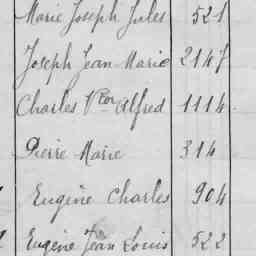 Marie Joseph Jules 521
Joseph Jean Marie 2147
Charles Vtor Alfred 1114
Pierre Marie 314
Eugène Charles 904
Eugène Jean Louis 522